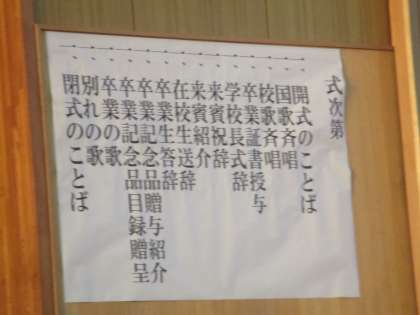 式次第
一、開式のことば
一、国歌斉唱
一、校歌斉唱
一、卒業証書授与
一、学校長式辞
一、来賓祝辞
一、来賓紹介
一、在校生送辞
一、卒業生答辞
一、卒業記念品贈与紹介
一、卒業記念品目録贈呈
一、卒業の歌
一、別れの歌
一、閉式のことば